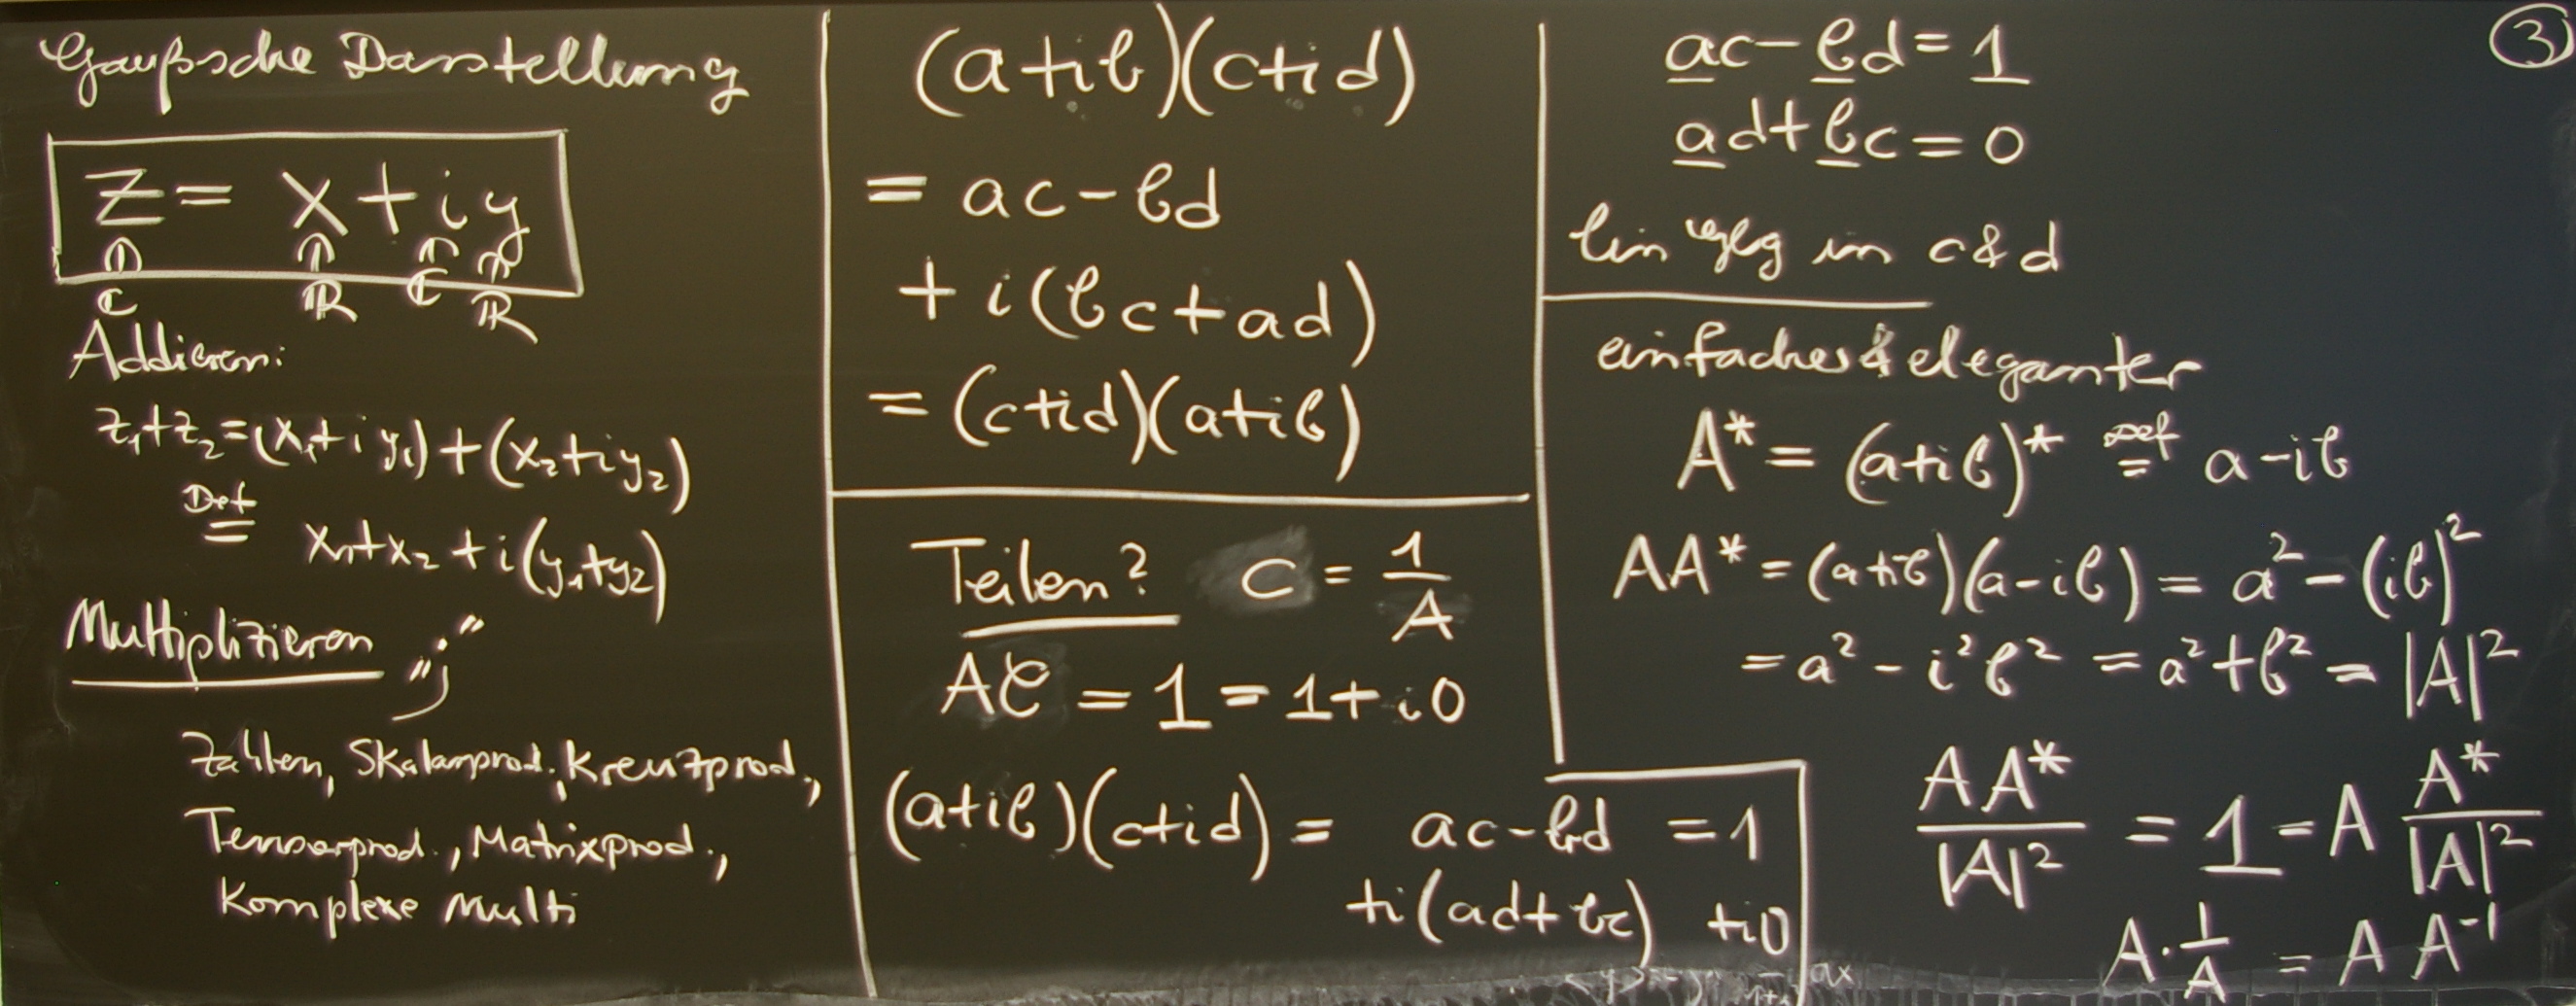 Gaußsche Darstellung
z = x + i y
ℂ ℝ ℂ ℝ
Addieren:
z₁+z₂=(x₁+i y₁)+(x₂+iy₂)
Def
= x₁+x₂ + i(y₁+y₂)
Multiplizieren "j"
Zahlen, Skalarprod., Kreuzprod.,
Tensorprod., Matrixprod.,
Komplexe Multi
(a+ib)(c+id)
= ac-bd
+ i(bc+ad)
= (c+id)(a+ib)
Teilen? C = 1/A
AC = 1 = 1+i0
(a+ib)(c+id) = ac-bd = 1
+i(ad+bc) +i0
③
ac-bd=1
ad+bc=0
lin in c&d
einfacher & eleganter
A* = (a+ib)* Def= a-ib
AA* = (a+ib)(a-ib) = a²-(ib)²
= a² - i²b² = a²+b² = |A|²
AA*/|A|² = 1 = A A*/|A|²
A·1/A = A A⁻¹